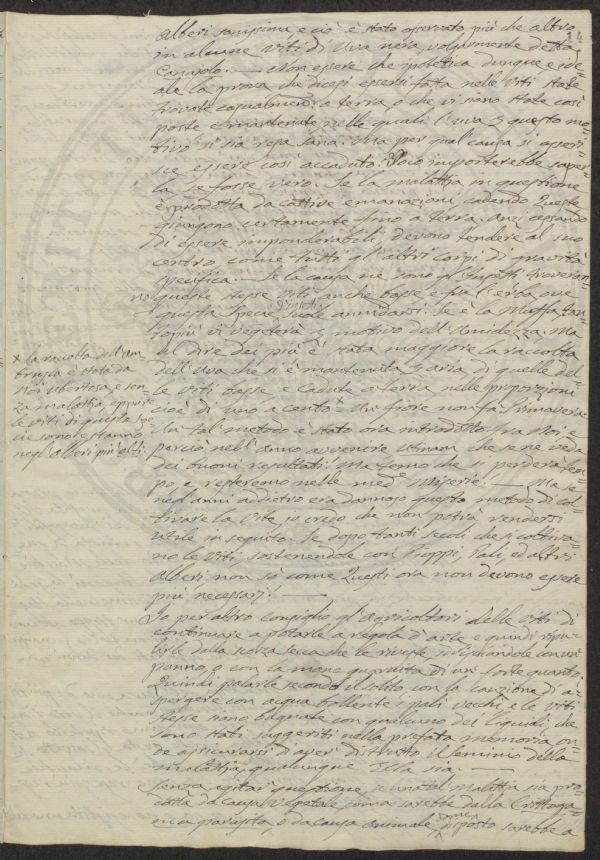 14
alberi sanissima e ciò è stato osservato più che altro
in alcune viti di uva nera volgarmente detta
Canajolo. — Non essere che ipotetica dunque e ide-
ale la prova che dicesi essersi fatta nelle viti state
trovate casualmente a terra, o che vi siano state così
poste e mantenute nelle quali l'uva p questo mo-
tivo si sia resa sana. Ma per qual causa si asseri-
sce essere così accaduto. Poco importerebbe saper-
la se fosse vero. Se la malattia in questione
è prodotta da cattive emanazioni cadendo queste
giungono certamente fino a terra. Anzi cessando
di essere imponderabili, devono tendere al suo
centro come tutti gl'altri corpi di gravità
specifica. — Se la causa ne sono gl'Insetti troveran-
no queste stesse viti anche basse e fra l'erba ove
questa specie d'insetti suole annidarsi. Se è la Muffa
vi vegeterà p motivo dell'Umidezza. Ma
al dire dei più è stata maggiore la raccolta
dell'Uva che si è mantenuta p aria di quelle del-
le viti basse e cadute a terra nelle proporzioni
cioè di uno a cento.* Un fiore non fa Primavera
Un tal metodo è stato ora introdotto fra Noi e
perciò nell'anno avvenire Utinam che se ne veda
dei buoni resultati. Ma temo che si perderà tem-
po, e resteremo nelle med.e Miserie. — Ma se
negl'anni addietro era dannoso questo metodo di col-
tivare la Vite, io credo che non potrà rendersi
utile in seguito. Se dopo tanti secoli che si coltiva-
no le Viti sostenendole con Pioppi, Pali, ed altri
alberi non sò come Questi ora non devono essere
più necessari. —
* la raccolta dell'am-
brusca è stata da
Noi ubertosa e sen-
za malattia, eppure
le viti di questa spe-
cie sono e stanno
negl'alberi più alti.
Io per altro consiglio gl'agricoltori delle Viti di
continuare a potarle a regola d'arte e quindi ripu-
lirle dalla scorza secca che le riveste, con un
panno, o con la mano guarnita di un forte guanto.
Quindi palarle secondo il solito, con la cauzione di a-
spergere con acqua bollente i pali vecchi, e le viti
stesse siano bagnate con qualcuno dei liquidi, che
sono stati suggeriti nella prefata memoria on-
de assicurarsi di aver distrutto il seminio della
malattia, qualunque Ella sia. —
Senza agitar questione, se una tal malattia sia pro-
dotta da causa Vegetale come sarebbe dalla Crittoga-
mica parassita, o da causa animale, come disposto sarebbe a